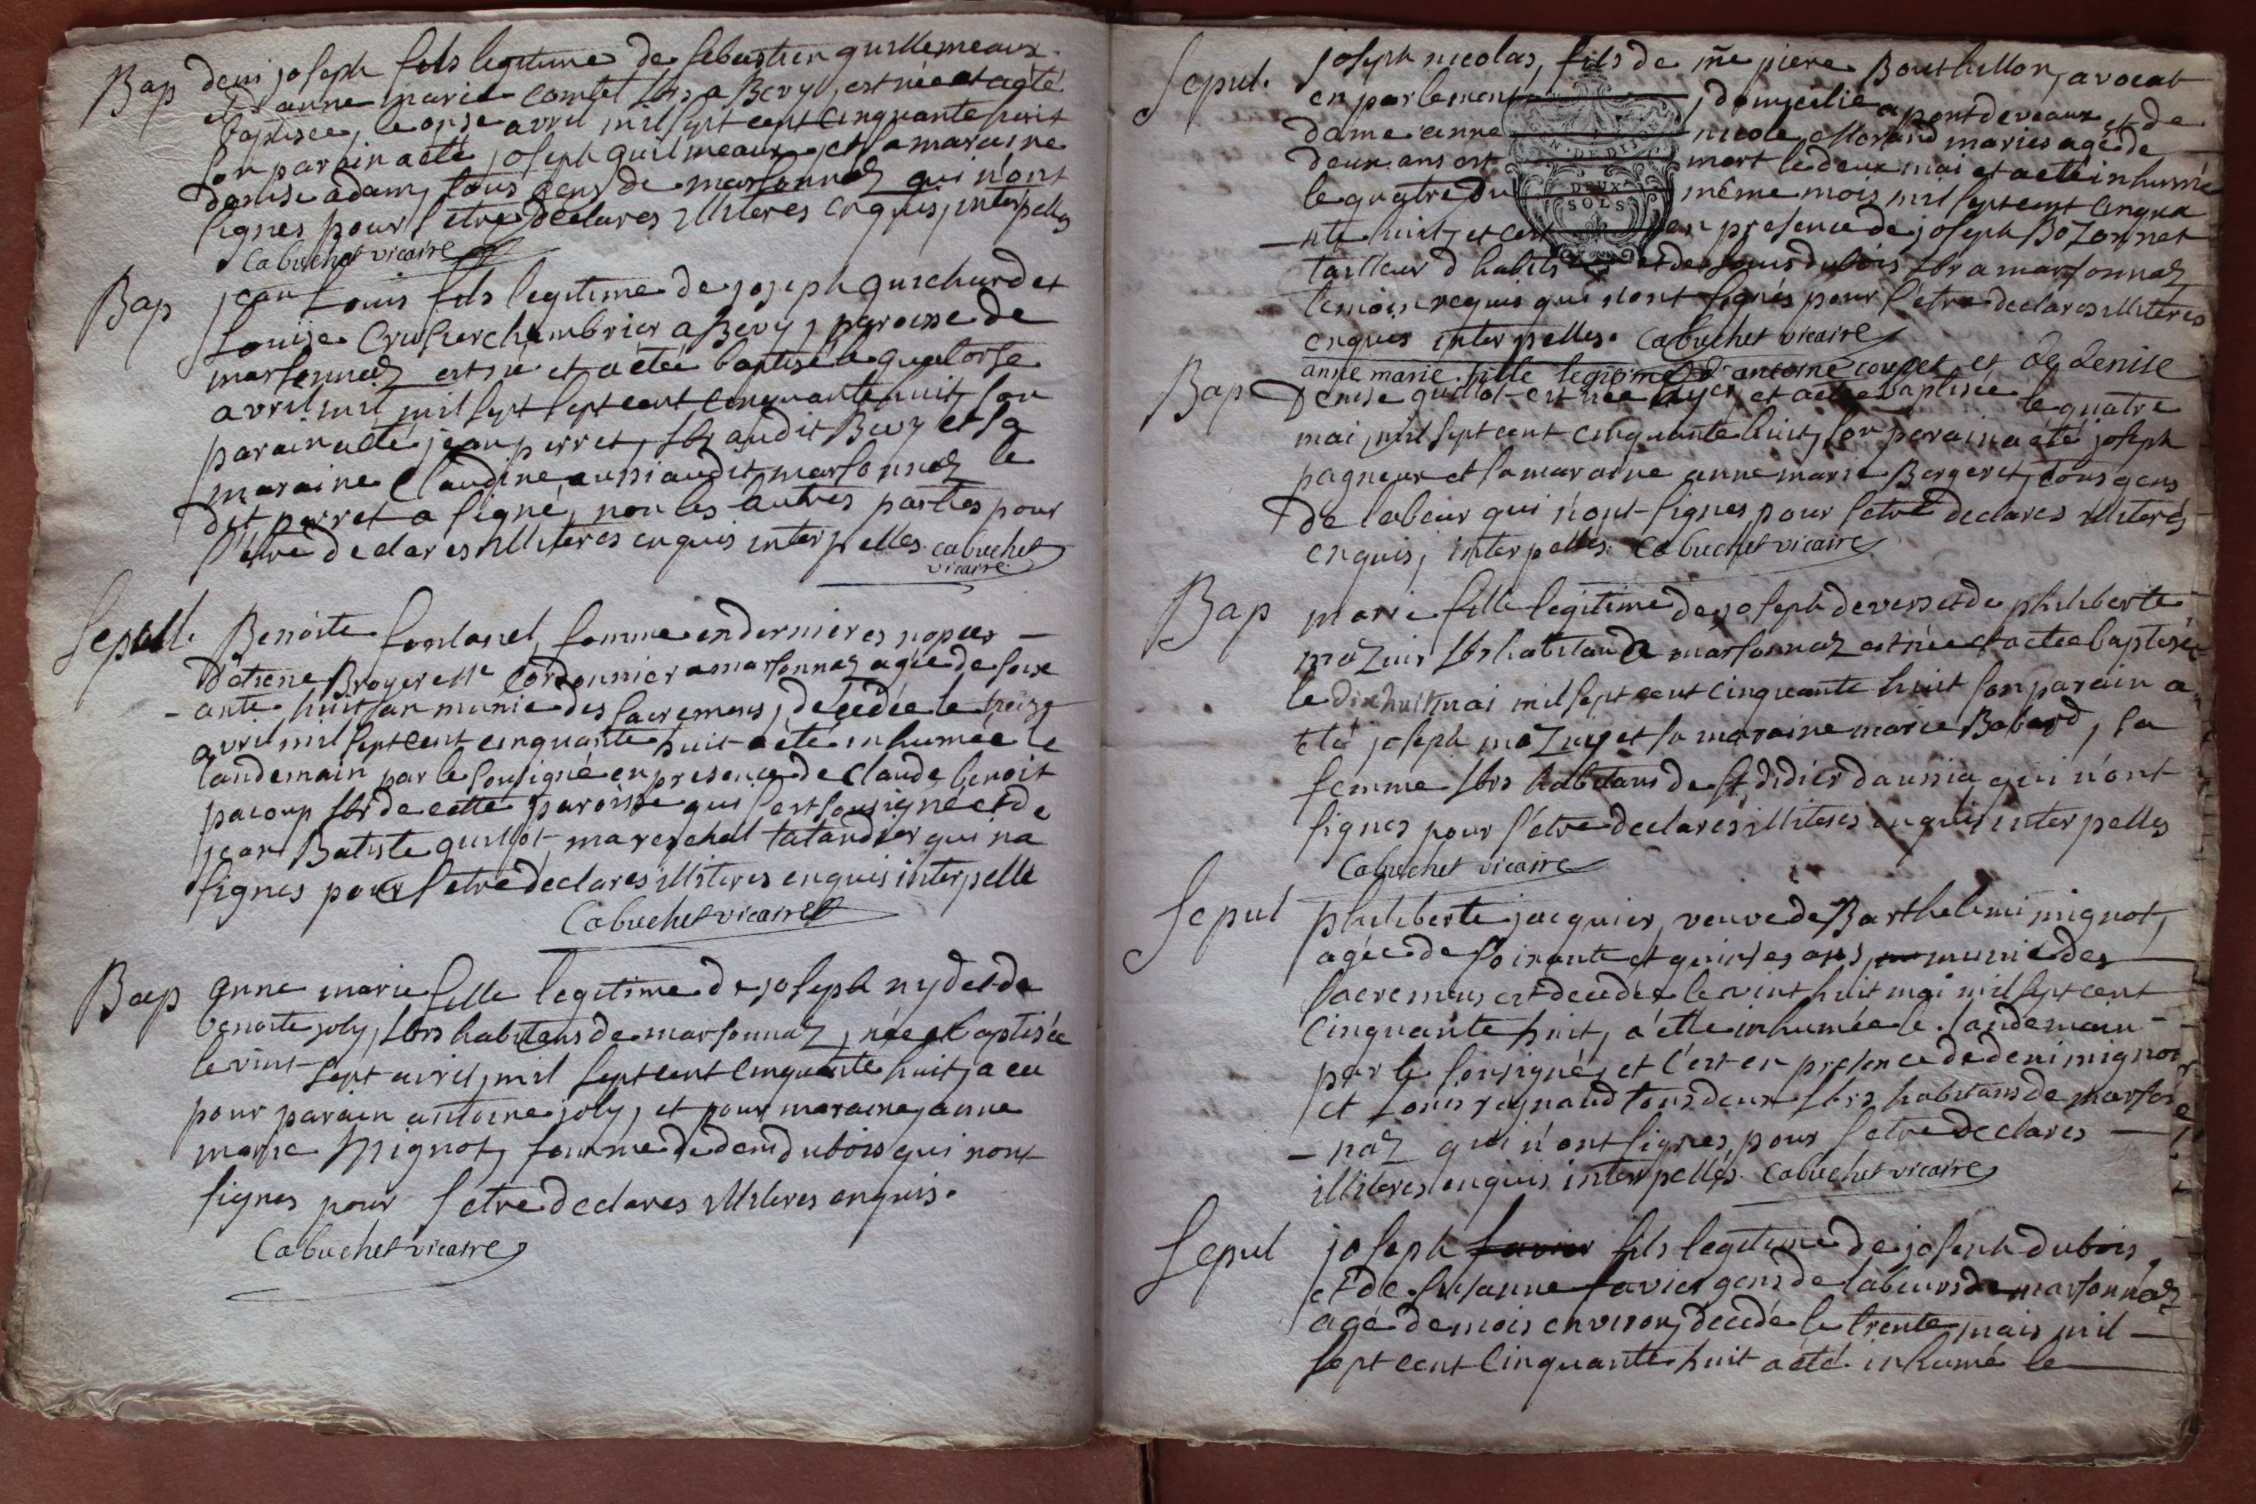 Bap
deni joseph fils legitime de sebastien guillemeaux
et anne marie comtet lbrs a Bevy, est née et a eté
baptisée, le onse avril mil sept cent cinquante huit
son parain a eté joseph guilmeaux, et sa maraine
denise adam, tous gens de marsonnaz qui n'ont
signes pour s'etre declares illiteres enquis, interpelles
Cabuchet vicaire
Bap
jean Louis fils legitime de joseph guichard et
Louise chambrier a Bevy, paroisse de
marsonnaz est né et a été baptisé le quatorse
avril mil mil sept sept cent cinquante huit, son
parain a eté jean perret, lbr audit Bevy et sa
maraine Claudine aussi audit marsonnaz le
dit perret a signé, non les autres parties pour
s'être declares illiteres enquis interpelles. cabuchet
vicaire
Sepult.
Benoite fontanel, femme en dernieres nopces —
d'etiene Broyer me Cordonnier a marsonnaz agée de soix
- ante huit an munie des sacremens, decedée le treize
avril mil sept cent cinquante huit a eté inhumée le
landemain par le sousigné en presence de Claude benoit
pacoup lbr de cette paroisse qui s'est sousigné et de
jean Batiste guillot mareschal tatandier qui n'a
signes pour s'etre declares illiteres enquis interpelle
Cabuchet vicaire
Bap
anne marie fille legitime de joseph nyd et de
benoite joly, lbrs habitans de marsonnaz, née et baptisée
le vint sept avril, mil sept cent cinquante huit, a eu
pour parain antoine joly, et pour maraine, anne
marie Mignot, femme de deni dubois qui n'ont
signes pour s'etre declares illiteres enquis.
Cabuchet vicaire
Sepul.
joseph nicolas, fils de me piere Bouthillon, avocat
en parlement, domicilié a pont de veaux et de
dame anne nicole Morand maries agé de
deux ans est mort le deux mai et a eté inhumé
le quatre du même mois mil sept cent cinqua
- nte huit, et c'est en presence de joseph Bozonnet
tailleur d'habits et de Louis dubois lbr a marsonnaz
temoins requis qui n'ont signés pour s'etre declares illiteres
enquis interpelles. Cabuchet vicaire
Bap
anne marie fille legitime d'antoine coupet et de denise
denise guillot est née hyer et a eté baptisée le quatre
mai, mil sept cent cinquante huit, son parain a été joseph
pagneux et sa maraine anne marie Bergeret, tous gens
de labeur qui n'ont signes pour s'etre declares illiterés
enquis, interpelles. Cabuchet vicaire
Bap
marie fille legitime de joseph devers et de philiberte
mazuir lbrs habitans de marsonnaz est née et a eté baptisée
le dixhuit mai mil sept cent cinquante huit son parain a
eté joseph mazuy et sa maraine marie Babard, sa
femme lbrs habitans de st didier d'aussia qui n'ont
signes pour s'etre declares illiteres enquis interpelles
Cabuchet vicaire
Sepul
philiberte jacquier, veuve de Barthelemi mignot,
agée de soixante et quinses ans, munie des
sacremens est decedée le vint huit mai mil sept cent
cinquante huit, a éte inhumée le landemain -
par le sousigné, et c'est en presence de deni mignot
et Louis reynaud tous deux lbrs habitans de marson
- naz qui n'ont signes, pour s'etre declares —
illiteres enquis interpellés. Cabuchet vicaire
Sepul
joseph favier fils legitime de joseph dubois,
et de susanne favier gens de labeurs de marsonnaz
agé de mois environ, decedé le trente mais mil —
sept cent cinquante huit a eté inhumé le
GEN. DE DIJON
DEUX
SOLS